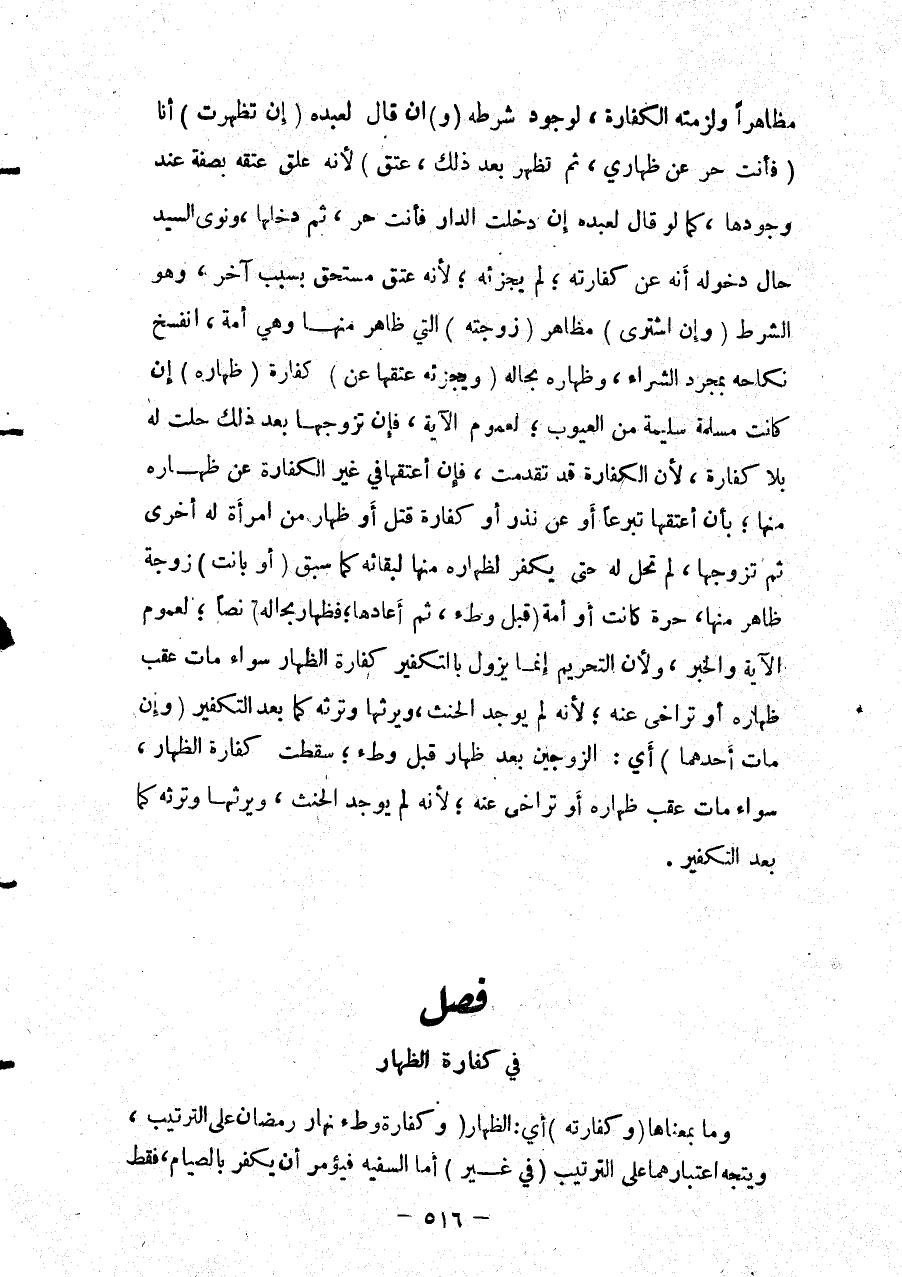 مظاهراً ولزمته الكفارة ، لوجود شرطه (و) ان قال لعبده ( إن تظهرت ) أنا
( فأنت حر عن ظهاري ، ثم تظهر بعد ذلك ، عتق ) لأنه علق عتقه بصفة عند
وجودها ، كما لو قال لعبده إن دخلت الدار فأنت حر ، ثم دخلها ، ونوى السيد
حال دخوله أنه عن كفارته ؛ لم يجزئه ؛ لأنه عتق مستحق بسبب آخر ، وهو
الشرط ( وإن اشترى ) مظاهر ( زوجته ) التي ظاهر منها وهي أمة ، انفسخ
نكاحه بمجرد الشراء ، وظهاره بحاله ( ويجزئه عتقها عن ) كفارة ( ظهاره ) إن
كانت مسلمة سليمة من العيوب ؛ لعموم الآية ، فإن تزوجها بعد ذلك حلت له
بلا كفارة ، لأن الكفارة قد تقدمت ، فإن أعتقها في غير الكفارة عن ظهاره
منها ؛ بأن أعتقها تبرعاً أو عن نذر أو كفارة قتل أو ظهار من امرأة له أخرى
ثم تزوجها ، لم تحل له حتى يكفر لظهاره منها لبقائه كما سبق ( أو بانت ) زوجة
ظاهر منها، حرة كانت أو أمة (قبل وطء ، ثم أعادها؛ فظهار بحاله) نصاً ؛ لعموم
الآية والخبر ، ولأن التحريم إنما يزول بالتكفير كفارة الظهار سواء مات عقب
ظهاره أو تراخى عنه ؛ لأنه لم يوجد الحنث، ويرثها وترثه كما بعد التكفير ( وإن
مات أحدهما ) أي : الزوجين بعد ظهار قبل وطء ؛ سقطت كفارة الظهار ،
سواء مات عقب ظهاره أو تراخى عنه ؛ لأنه لم يوجد الحنث ، ويرثها وترثه كما
بعد التكفير .
فصل
في كفارة الظهار
وما بمعناها (وكفارته ) أي: الظهار ( وكفارة وطء نهار رمضان على الترتيب ،
ويتجه اعتبارهما على الترتيب (في غير ) أما السفيه فيؤمر أن يكفر بالصيام، فقط
– ٥١٦ –